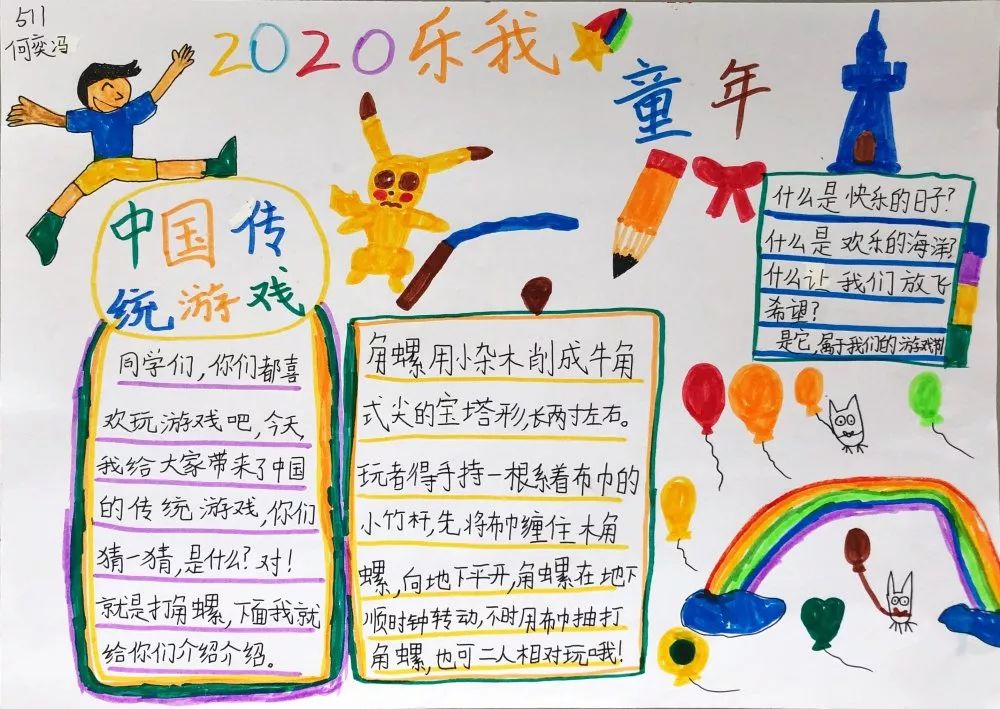 511
何奕冯
2020乐我
童年
中国传
统游戏
同学们,你们都喜
欢玩游戏吧,今天,
我给大家带来了中国
的传统游戏,你们
猜一猜,是什么?对!
就是打角螺,下面我就
给你们介绍介绍。
角螺用小杂木削成牛角
式尖的宝塔形,长两寸左右。
玩者得手持一根系着布巾的
小竹杆,先将布巾缠住木角
螺,向地下平开,角螺在地下
顺时钟转动,不时用布巾抽打
角螺,也可二人相对玩哦!
什么是快乐的日子?
什么是欢乐的海洋?
什么让我们放飞
希望?
是它,属于我们的游戏节